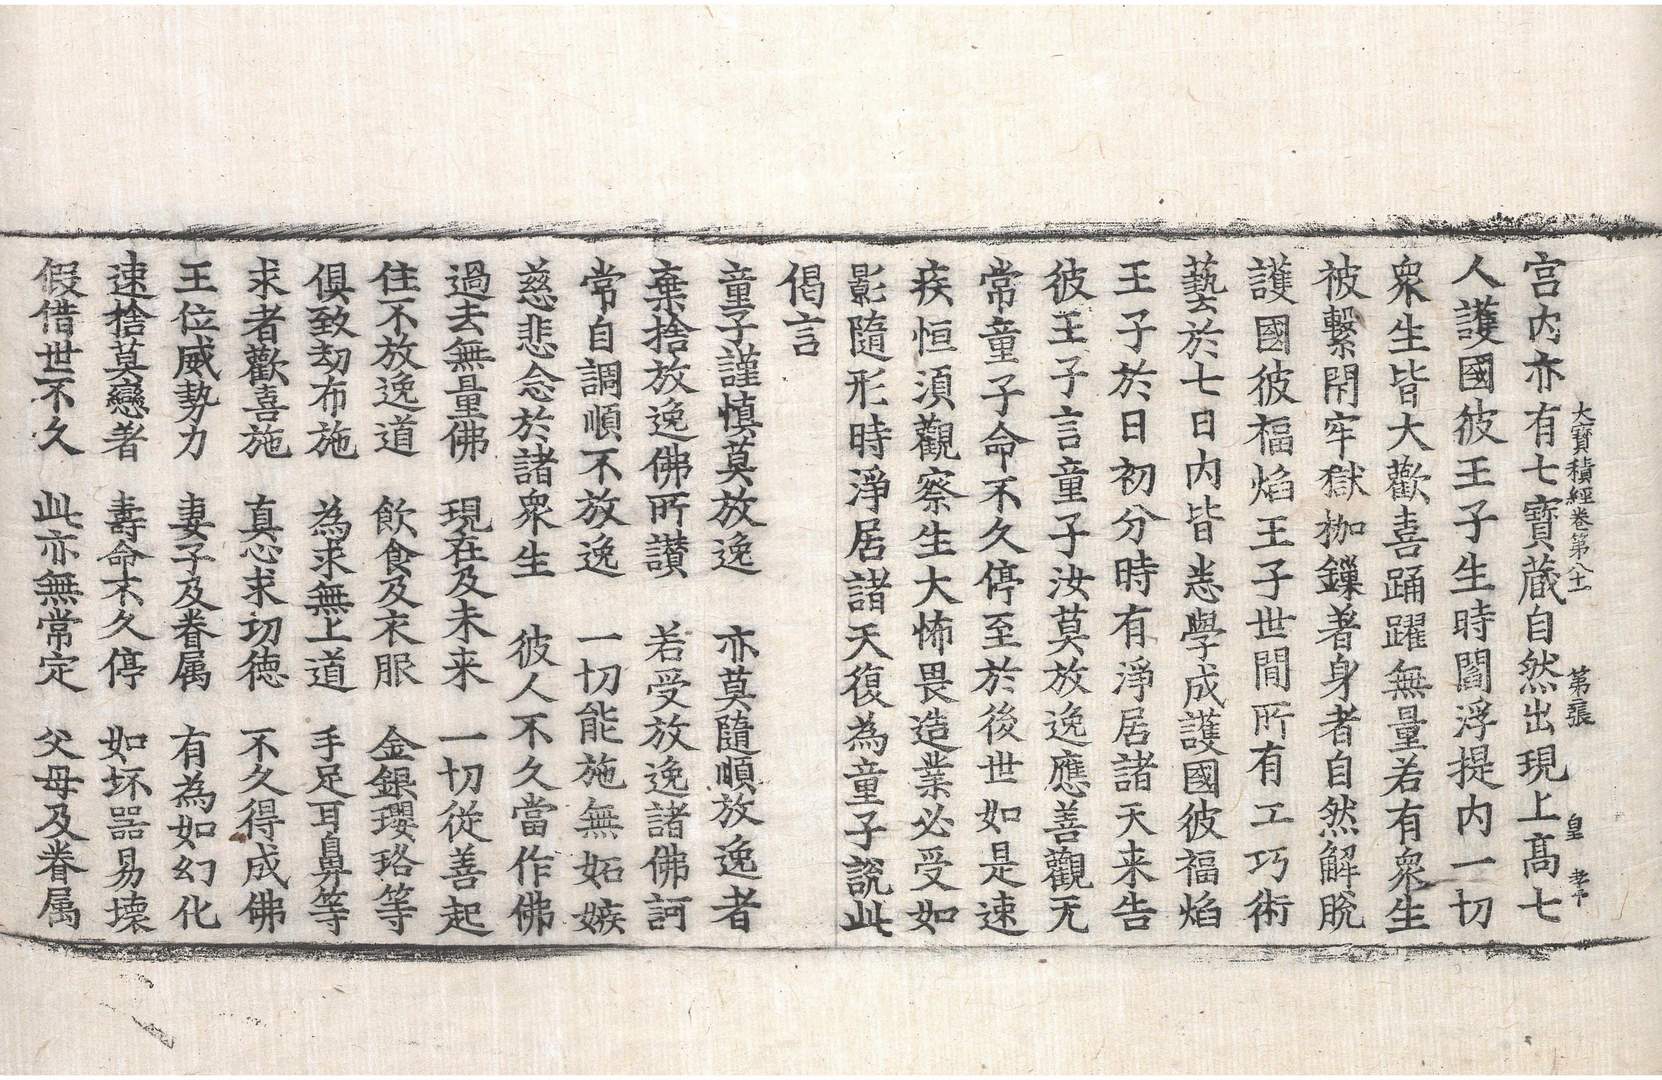 大寶積經卷第八十一 第 張 皇
宮内亦有七寶蔵自然出現上高七
人護國彼王子生時閻浮提内一切
衆生皆大歡喜踊躍無量若有衆生
被繫閉牢獄枷鏁著身者自然解脫
護國彼福焰王子世間所有工巧術
藝於七日内皆悉學成護國彼福焰
王子於日初分時有淨居諸天来告
彼王子言童子汝莫放逸應善觀无
常童子命不久停至於後世如是速
疾恒須觀察生大怖畏造業必受如
影隨形時淨居諸天復為童子說此
偈言
童子謹慎莫放逸 亦莫隨順放逸者
棄捨放逸佛所讃 若受放逸諸佛訶
常自調順不放逸 一切能施無妬嫉
慈悲念於諸衆生 彼人不久當作佛
過去無量佛 現在及未来 一切從善起
住不放逸道 飲食及衣服 金銀瓔珞等
俱致劫布施 為求無上道 手足耳鼻等
求者歡喜施 真心求功德 不久得成佛
王位威勢力 妻子及眷属 有為如幻化
速捨莫戀著 壽命不久停 如坏器易壊
假借世不久 此亦無常定 父母及眷属